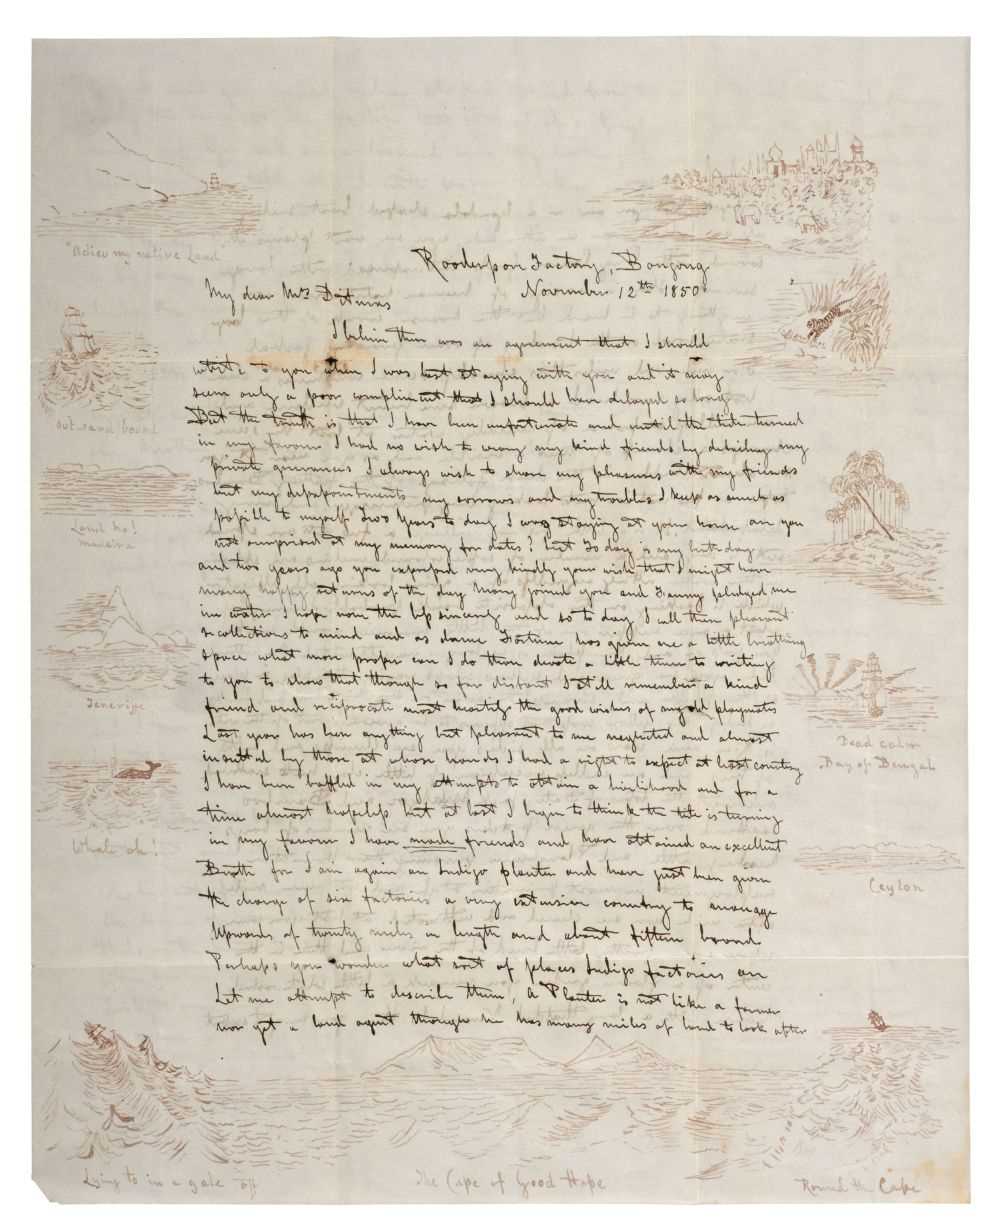 "Adieu my native Land"
Rooderpore Factory, Bongong
November 12th 1850
My dear Mrs
I believe there was an agreement that I should
write to you when I was last staying with you and it may
seem only a poor compliment that I should have delayed so long
But the truth is that I have been unfortunate and until the tide turned
in my favour I had no wish to weary my kind friends by detailing my
private grievances I always wish to share my pleasures with my friends
but my disappointments my sorrows and my troubles I keep as much as
possible to myself Two Years to day I was staying at your house are you
not surprised at my memory for dates? but To day is my birthday
and two years ago you expressed very kindly your wish that I might have
many happy returns of the day Mary joined you and Fanny pledged me
in water I hope none the less sincerely and so to day I call these pleasant
recollections to mind and as dame Fortune has given me a little breathing
space what more proper can I do than devote a little time to writing
to you to show that though so far distant I still remember a kind
friend and reciprocate most heartily the good wishes of my old playmates
Last year has been anything but pleasant to me neglected and almost
insulted by those at whose hands I had a right to expect at least courtesy
I have been baffled in my attempts to obtain a livelihood and for a
time almost hopeless but at last I begin to think the tide is turning
in my favour I have made friends and have obtained an excellent
Birth for I am again an Indigo planter and have just been given
the charge of six factories a very extensive country to manage
Upwards of twenty miles in length and about fifteen broad
Perhaps you wonder what sort of places Indigo factories are
Let me attempt to describe them, A Planter is not like a farmer
nor yet a land agent though he has many miles of land to look after
outward bound
Land ho!
madeira
Teneriffe
Whale oh!
Lying to in a gale off
The Cape of Good Hope
Round the Cape
Ceylon
Dead calm
Bay of Bengal